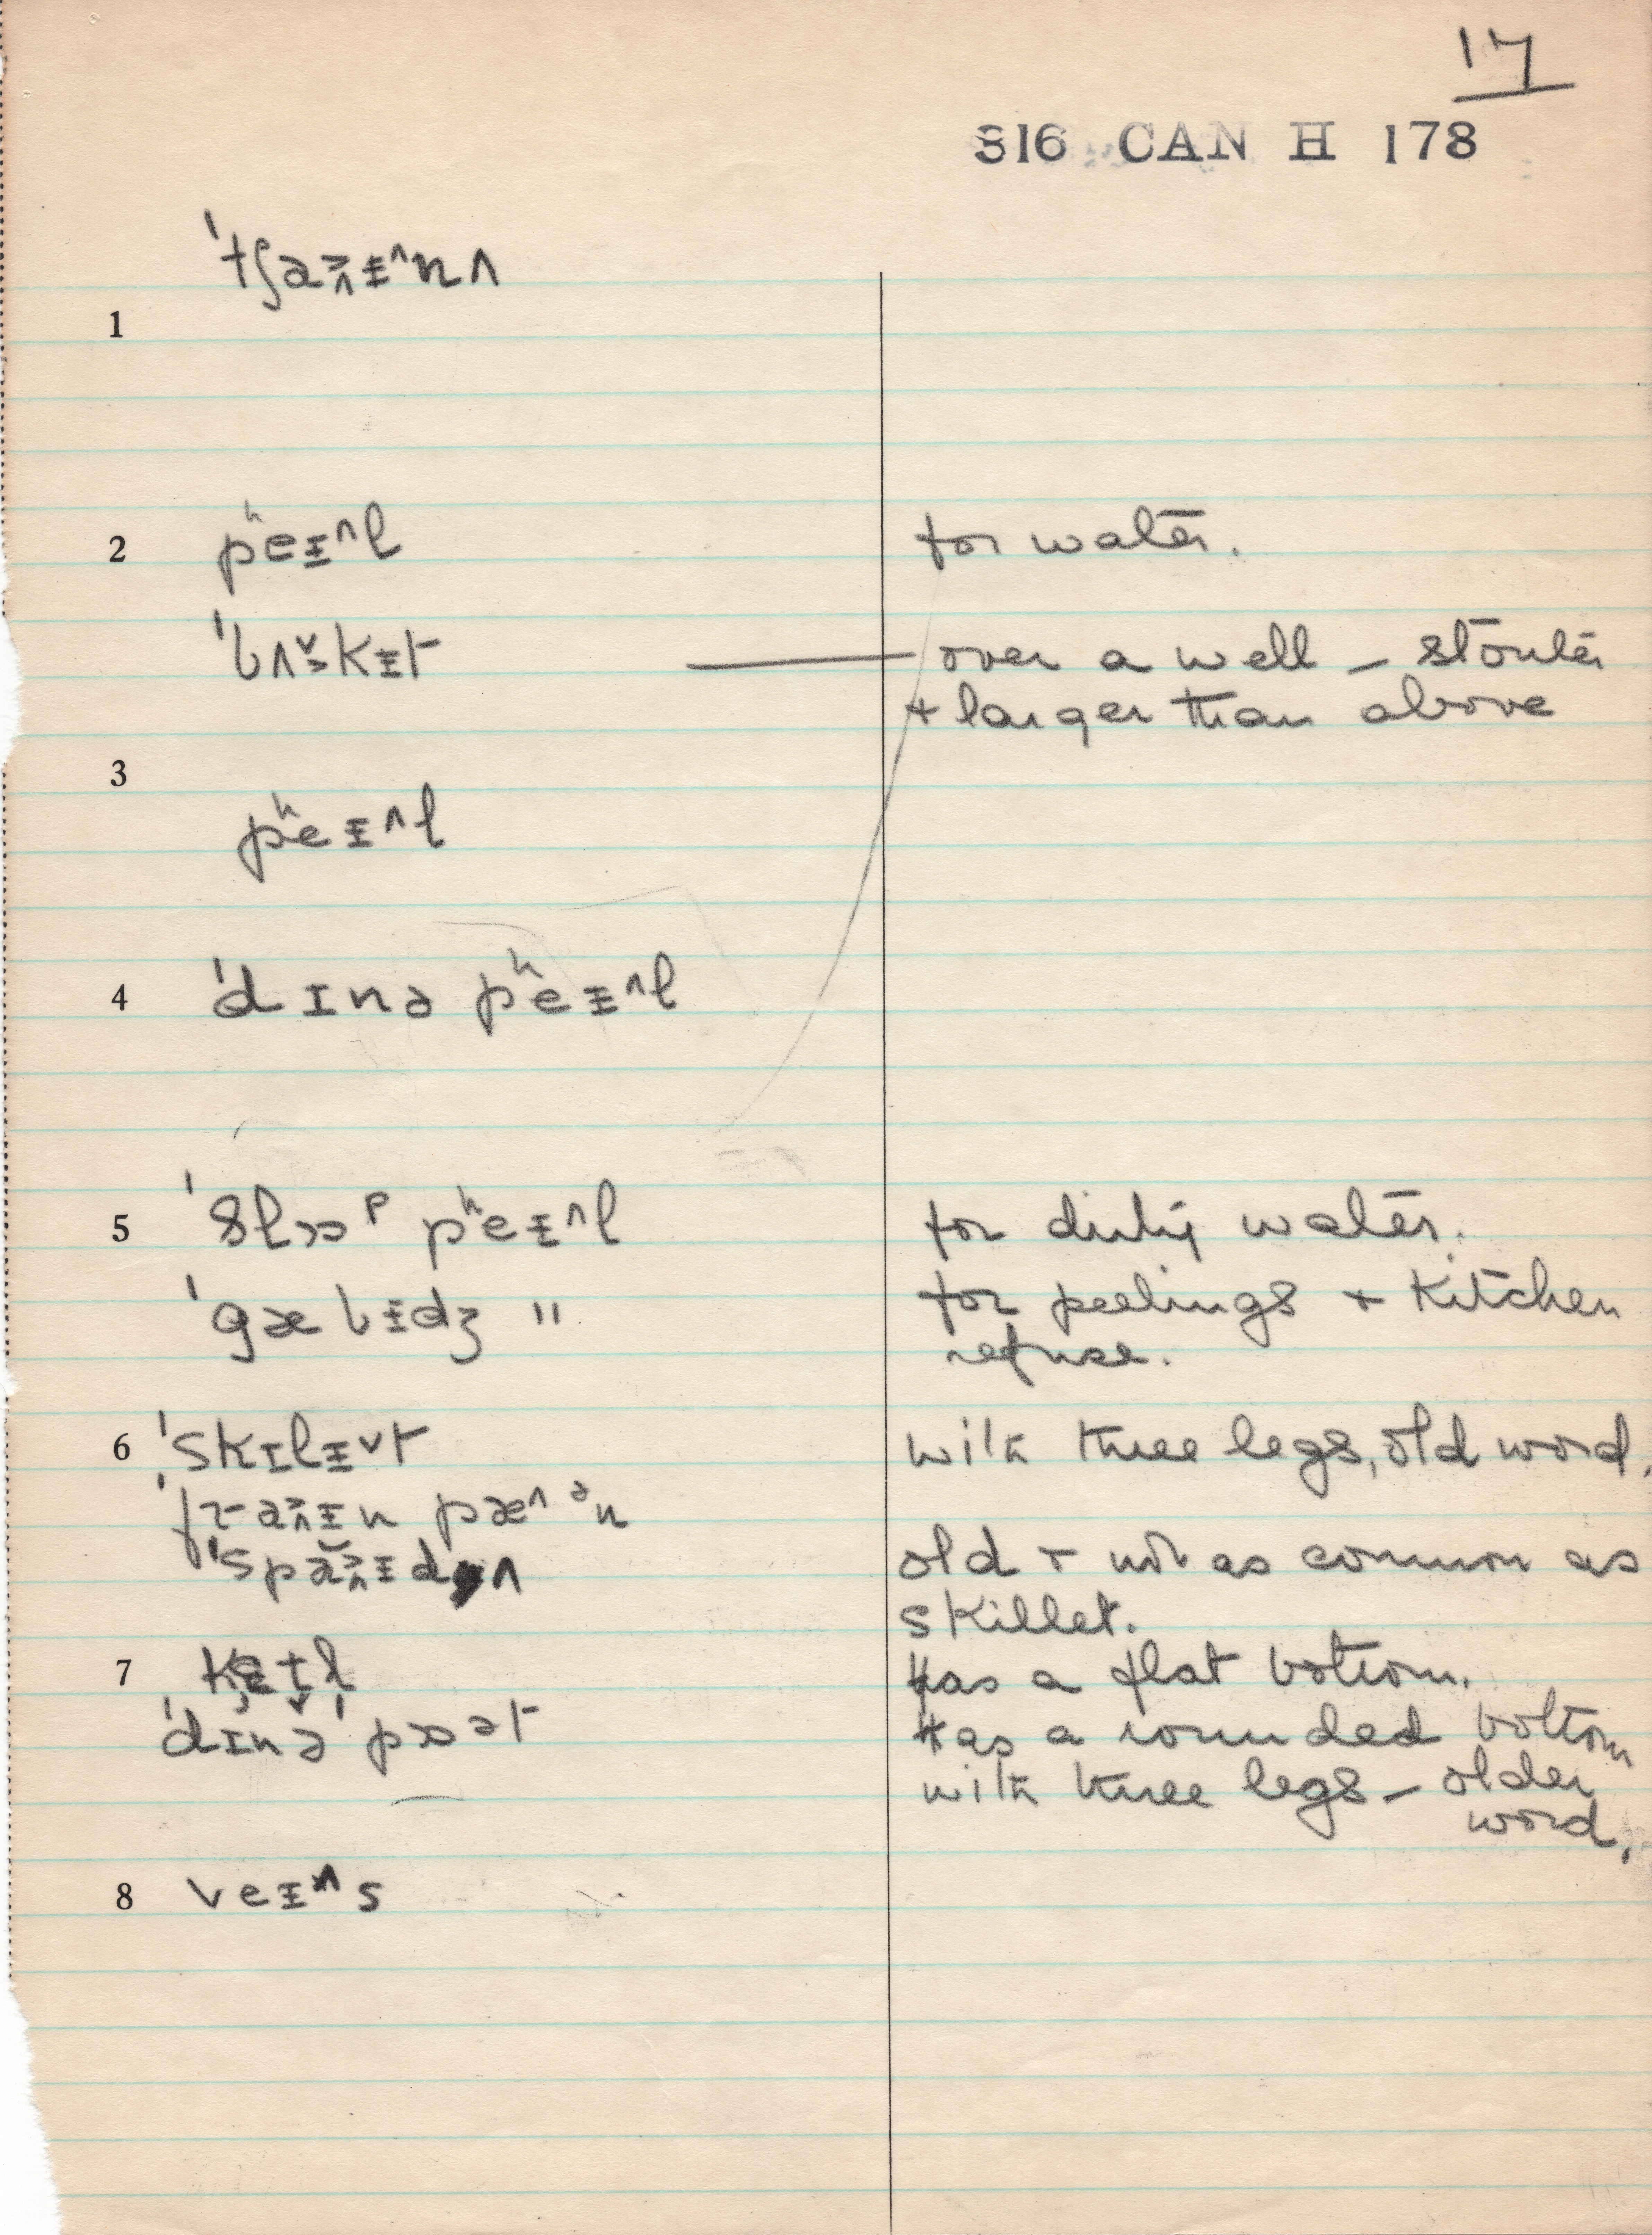 17
816 CAN H 178
1 ˈtʃaᵻ˄nʌ
2 pʰeᵻ˄l for water.
ˈbʌkᵻt — over a well – stouter
+ larger than above
3 pʰeᵻ˄l
4 ˈdɪnə pʰeᵻ˄l
5 ˈslɒᵖ pʰeᵻ˄l for dirty water.
ˈgæbᵻdʒ " for peelings + kitchen
refuse.
6 ˈskɪlᵻ˅t with three legs, old word.
pæ˄ᵊn
old + not as common as
skillet.
7 has a flat bottom.
ˈdɪnə pɒət has a rounded bottom
with three legs – older
word.
8 veᵻ˄s